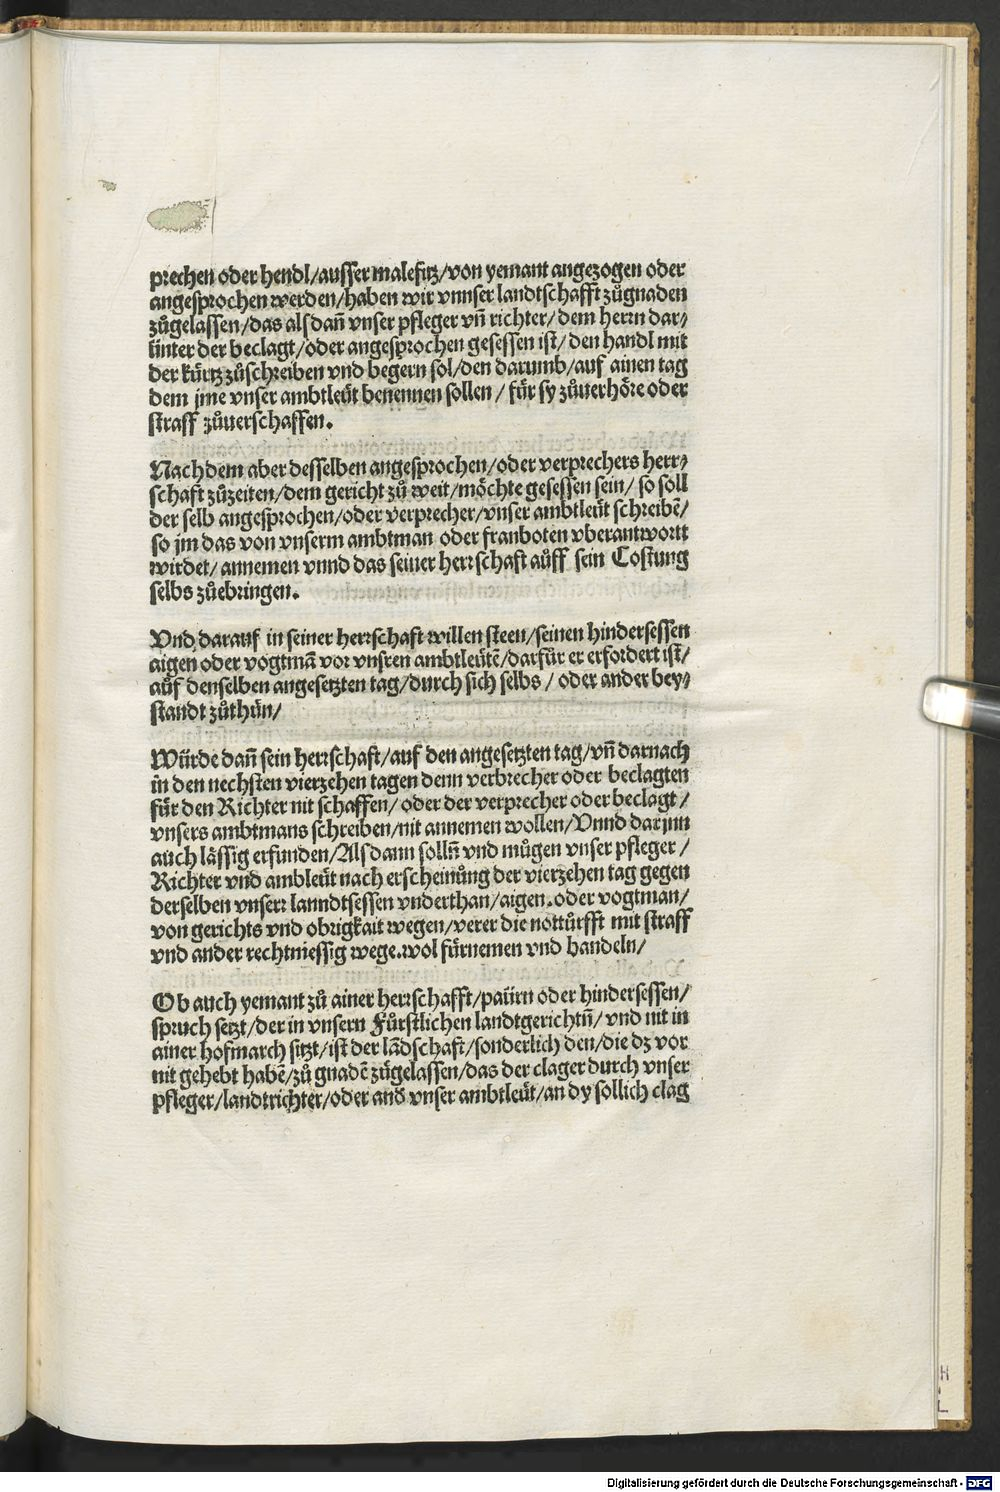 prechen oder hendl/ausser malefitz/von yemant angezogen oder
angesprochen werden/haben wir vnnser landtschafft zůgnaden
zůgelassen/das alsdañ vnser pfleger vñ richter/dem herrn dar⸗
ünter der beclagt/oder angesprochen gesessen ist/den handl mit
der kürtz zůschreiben vnd begern sol/den darumb/auf ainen tag
dem jme vnser ambtleüt benennen sollen/ für sy zůuerhöre oder
straff zůuerschaffen.
Nachdem aber desselben angesprochen/oder verprechers herr⸗
schaft zůzeiten/dem gericht zů weit/möchte gesessen sein/ so soll
der selb angesprochen/oder verprecher/vnser ambtleüt schreibē/
so jm das von vnserm ambtman oder franboten vberantwortt
wirdet/annemen vnnd das seiner herrschaft aůff sein Costung
selbs zůebringen.
Vnd darauf in seiner herrschaft willen steen/seinen hindersessen
aigen oder vogtmā vor vnsren ambtleütē/darfür er erfordert ist/
aůf denselben angesetzten tag/durch sich selbs/ oder ander bey⸗
standt zůthůn/
Würde dañ sein herrschaft/auf den angesetzten tag/vñ darnach
in den nechsten vierzehen tagen denn verbrecher oder beclagten
für den Richter nit schaffen/ oder der verprecher oder beclagt/
vnsers ambtmans schreiben/nit annemen wollen/Vnnd darjnn
auch lässig erfunden/Alsdann solln̄ vnd můgen vnser pfleger/
Richter vnd ambleüt nach erscheinůng der vierzehen tag gegen
derselben vnserr lanndtsessen vnderthan/aigen.oder vogtman/
von gerichts vnd obrigkait wegen/verer die nottůrfft mit straff
vnd ander rechtmessig wege.wol fürnemen vnd handeln/
Ob auch yemant zů ainer herrschafft/paürn oder hindersessen/
spruch setzt/der in vnsern Fůrstlichen landtgerichtn̄/ vnd nit in
ainer hofmarch sitzt/ist der lādschaft/sonderlich den/die dz vor
nit gehebt habē/zů gnadē zůgelassen/das der clager durch vnser
pfleger/landtrichter/oder and vnser ambtleüt/an dy sollich clag
Digitalisierung gefördert durch die Deutsche Forschungsgemeinschaft - DFG